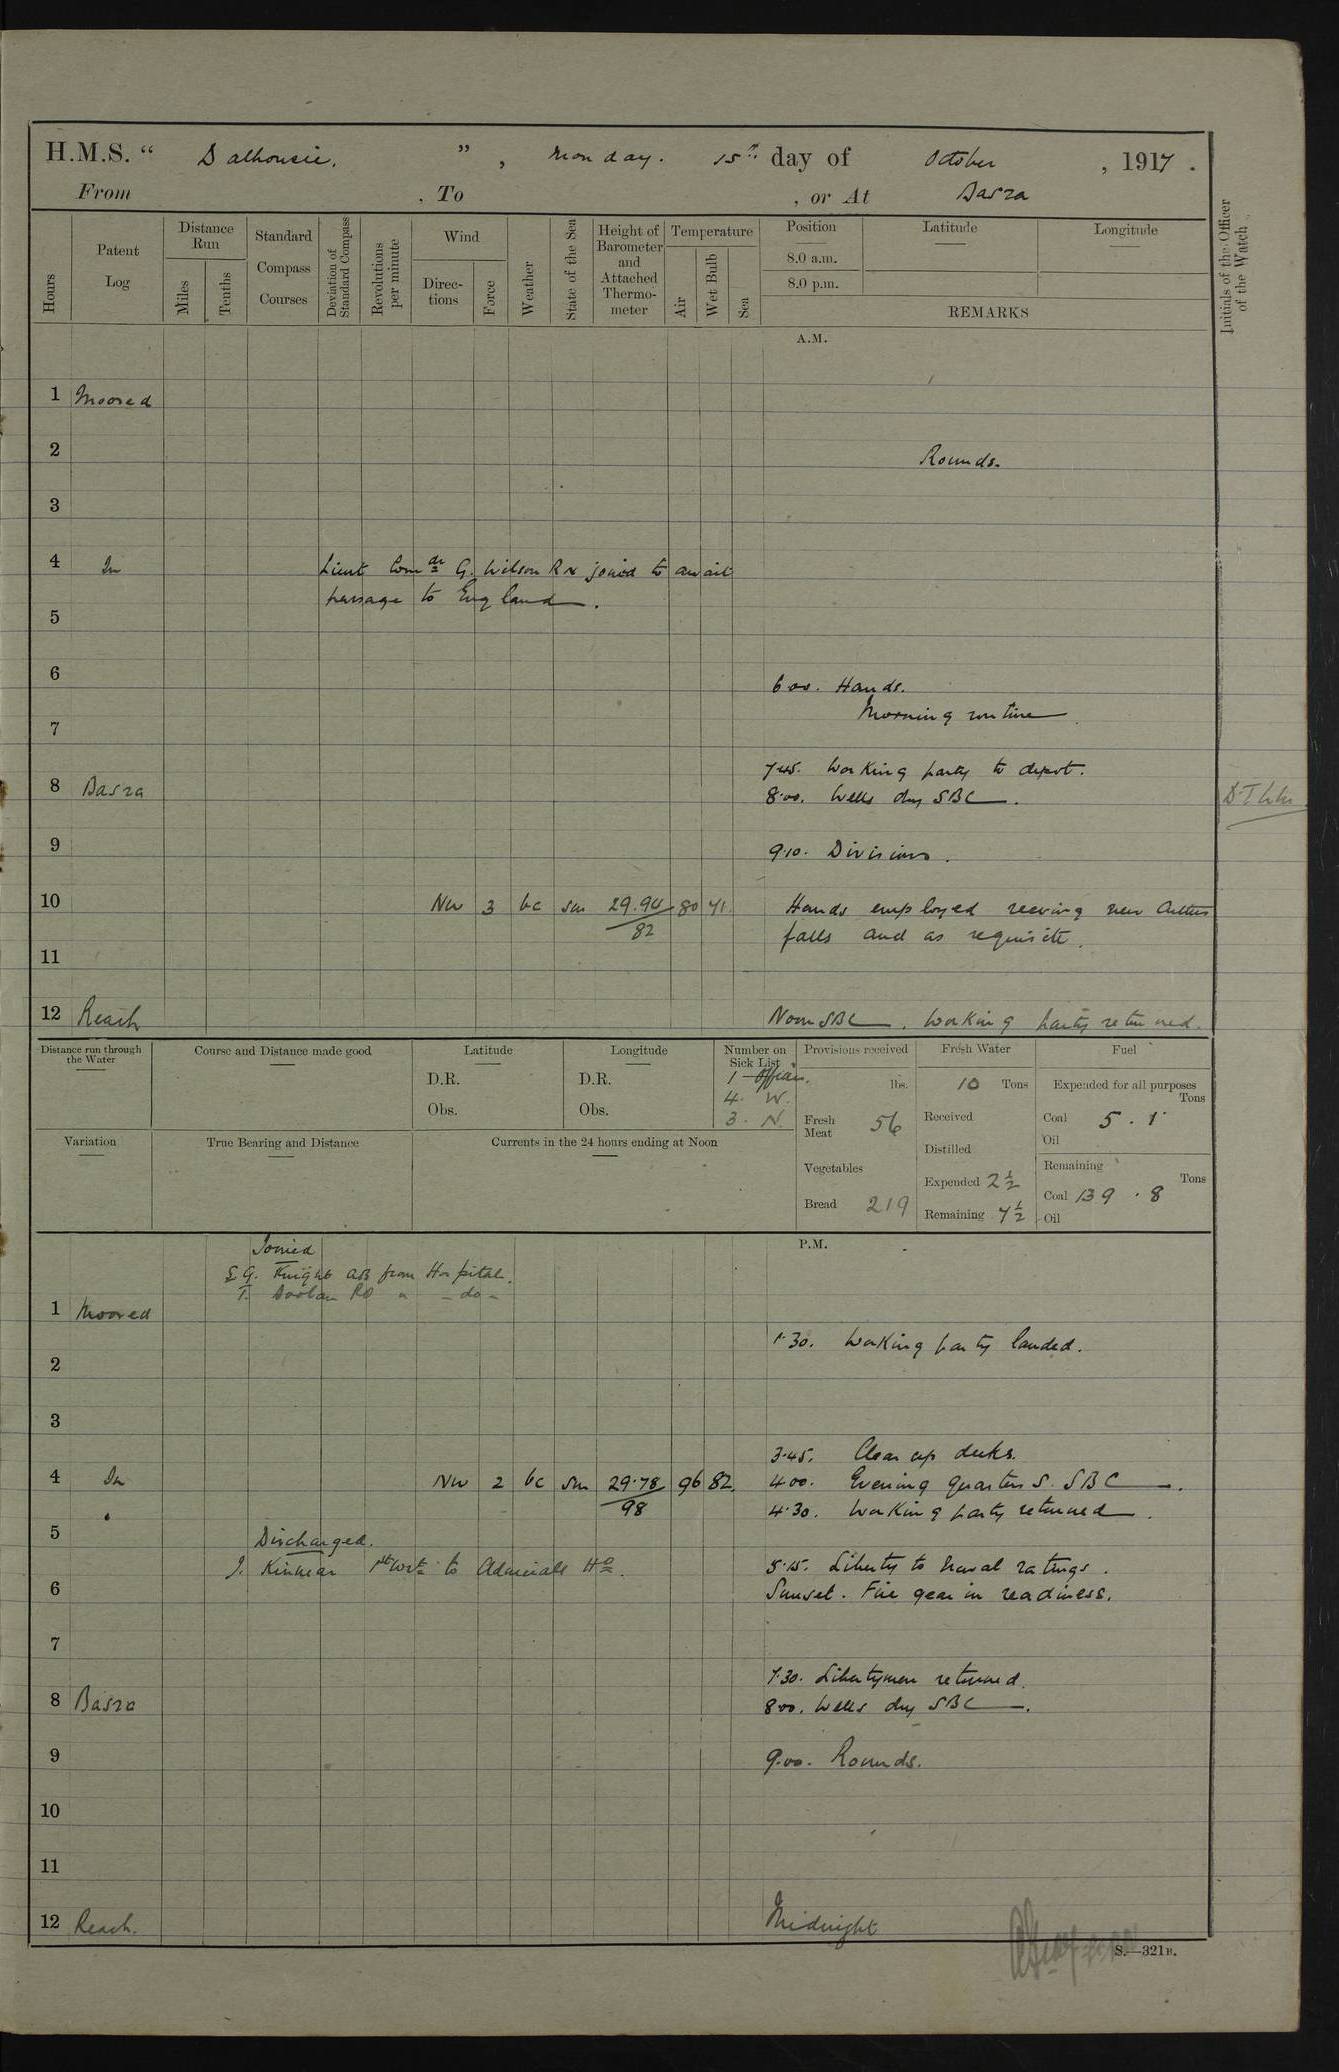 H.M.S. “ Dalhousie. ” , Monday. 15th day of October , 1917 .
From , To , or At Basra
Hours
Patent Log
Distance Run
Miles
Tenths
Standard Compass Courses
Deviation of Standard Compass
Revolutions per minute
Wind
Direc- tions
Force
Weather
State of the Sea
Height of Barometer and Attached Thermo- meter
Temperature
Air
Wet Bulb
Sea
Position
8.0 a.m.
8.0 p.m.
Latitude
Longitude
REMARKS
Initials of the Officer of the Watch
A.M.
1 Moored
2 Rounds.
3
4 In Lieut Comdr G. Wilson RN joined to await
passage to England.
5
6
6.00. Hands.
Morning routine
7
7.45. Working party to depot.
8 Basra 8.00. Wells dry SBC.
9
9.10. Divisions.
10 NW 3 bc sm 29.94 80 71 Hands employed reeving new Cutters
82 falls and as requisite.
11
12 Reach Noon SBC. Working party returned.
Distance run through the Water
Course and Distance made good
Latitude
D.R.
Obs.
Longitude
D.R.
Obs.
Number on Sick List
1 Officer.
4. W.
3. N.
Provisions received
lbs.
Fresh Meat 56
Vegetables
Bread 219
Fresh Water
10 Tons
Received
Distilled
Expended 2½
Remaining 7½
Fuel
Expended for all purposes
Tons
Coal 5.1
Oil
Remaining
Tons
Coal 139.8
Oil
Variation
True Bearing and Distance
Currents in the 24 hours ending at Noon
P.M.
Joined
G. Knight AB from Hospital.
T. Doolan RO " -do-
1 Moored
1.30. Working party landed.
2
3
3.45. Clear up decks.
4 In NW 2 bc sm 29.78 96 82. 4.00. Evening quarters S. SBC.
98 4.30. Working party returned.
5
Discharged.
J. Kinnear 1st Wrt to Admirals Ho.
5.15. Liberty to Naval ratings.
6 Sunset. Fire gear in readiness.
7
7.30. Libertymen returned.
8 Basra 8.00. Wells dry SBC.
9 9.00. Rounds.
10
11
12 Reach. Midnight
S.—321B.